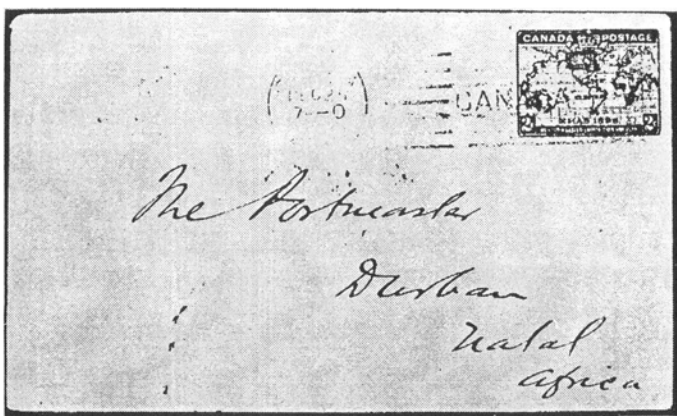 CANADA POSTAGE
7-0
CANADA
XMAS 1898
2 2
The Postmaster
Durban
Natal
Africa